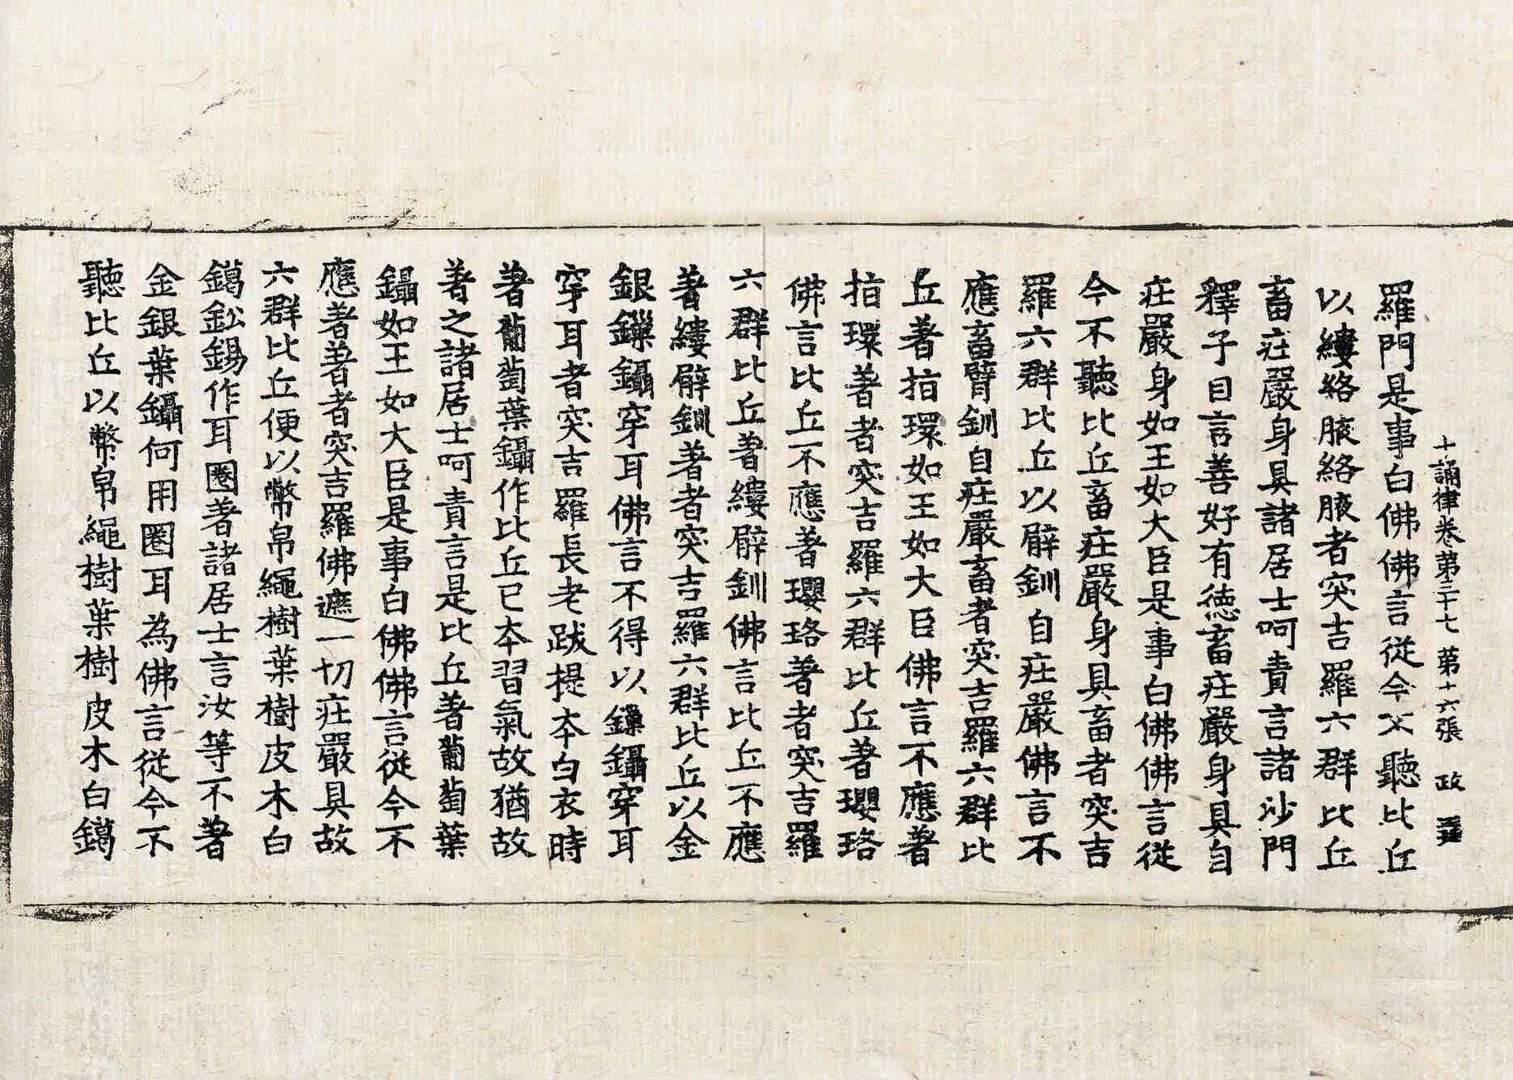 十誦律卷第三十七 第十六張 政
羅門是事白佛佛言從今不聽比丘
以縷絡腋絡腋者突吉羅六群比丘
畜莊嚴身具諸居士呵責言諸沙門
釋子自言善好有德畜莊嚴身具自
莊嚴身如王如大臣是事白佛佛言從
今不聽比丘畜莊嚴身具畜者突吉
羅六群比丘以臂釧自莊嚴佛言不
應畜臂釧自莊嚴畜者突吉羅六群比
丘著指環如王如大臣佛言不應著
指環著者突吉羅六群比丘著瓔珞
佛言比丘不應著瓔珞著者突吉羅
六群比丘著縷臂釧佛言比丘不應
著縷臂釧著者突吉羅六群比丘以金
銀鏁鑷穿耳佛言不得以鏁鑷穿耳
穿耳者突吉羅長老跋提本白衣時
著葡萄葉鑷作比丘已本習氣故猶故
著之諸居士呵責言是比丘著葡萄葉
鑷如王如大臣是事白佛佛言從今不
應著著者突吉羅佛遮一切莊嚴具故
六群比丘便以幣帛繩樹葉樹皮木白
鑞鈆錫作耳圈著諸居士言汝等不著
金銀葉鑷何用圈耳為佛言從今不
聽比丘以幣帛繩樹葉樹皮木白鑞